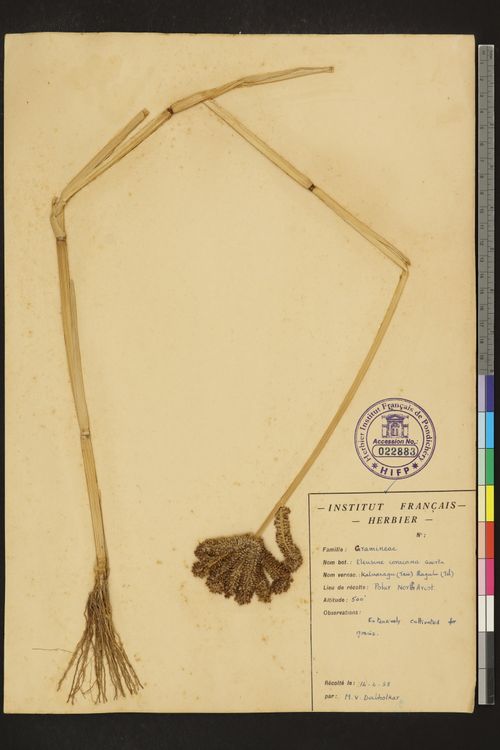 Herbier Institut Français de Pondichery
Accession No.:
022883
HIFP
— INSTITUT FRANÇAIS —
— HERBIER —
N° :
Famille : Gramineae
Nom bot. : Eleusine coracana Gaertn
Nom vernac. : (Tam)
Lieu de récolte : Polur North Arcot
Altitude : 500'
Observations :
Extensively cultivated for
grains.
Récolté le :
par : M. V. Dabholkar